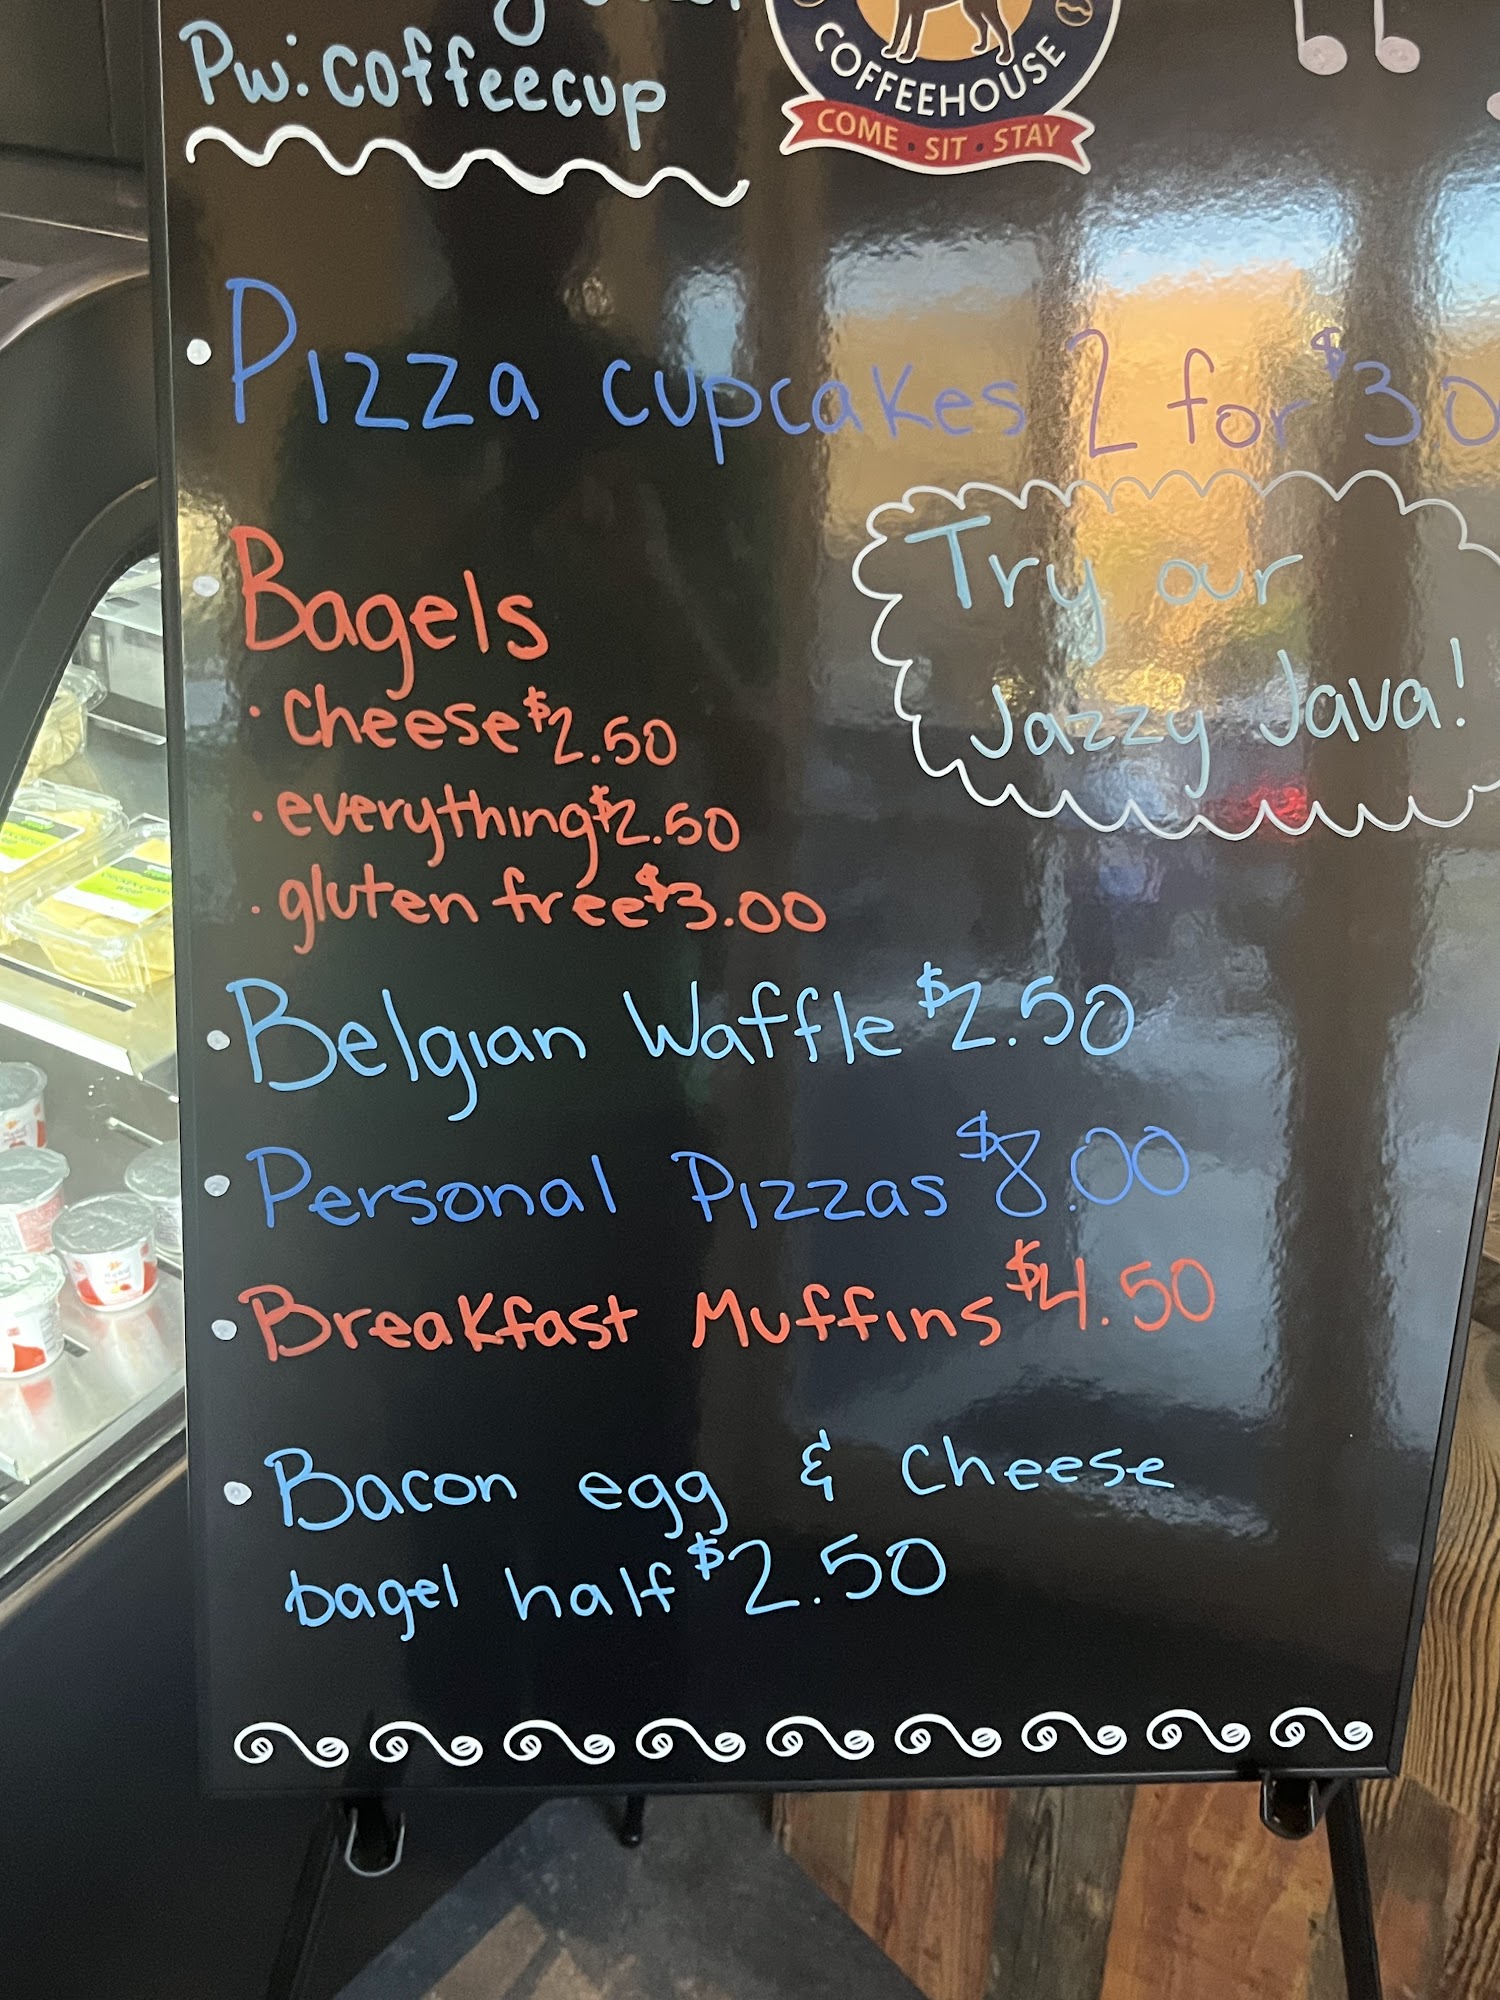 Pw: coffeecup
COFFEEHOUSE
COME · SIT · STAY
• Pizza cupcakes 2 for $3.0
• Bagels
• Cheese $2.50
• everything $2.50
• gluten free $3.00
Try our
Jazzy Java!
• Belgian Waffle $2.50
• Personal Pizzas $8.00
• Breakfast Muffins $4.50
• Bacon egg & Cheese
bagel half $2.50